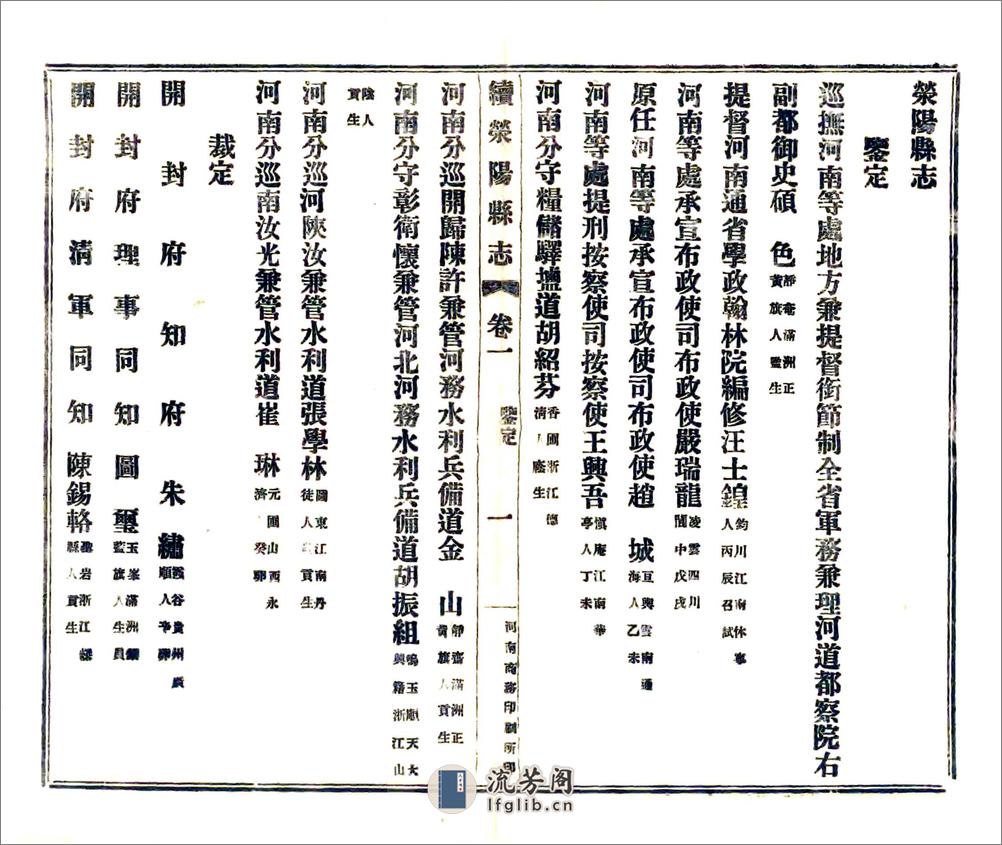 滎陽縣志
鑒定
巡撫河南等處地方兼提督銜節制全省軍務兼理河道都察院右
副都御史碩　色靜菴滿洲正黃旗人監生
提督河南通省學政翰林院編修汪士鍠鈞川江南休寧人丙辰召試
河南等處承宣布政使司布政使嚴瑞龍凌雲四川閬中戊戌
原任河南等處承宣布政使司布政使趙　城亘輿雲南通海人乙未
河南等處提刑按察使司按察使王興吾慎庵江南華亭人丁未
河南分守糧儲驿鹽道胡紹芬香圃浙江德清人廕生
續滎陽縣志　卷一　鑒定　一　河南商務印刷所印
河南分巡開歸陳許兼管河務水利兵備道金　山靜齋滿洲正黃旗人貢生
河南分守彰衛懷兼管河北河務水利兵備道胡振組鳴玉順天大興籍浙江山
陰人貢生
河南分巡河陝汝兼管水利道張學林東江南丹徒人貢生
河南分巡南汝光兼管水利道崔　琳元圃山西永濟癸卯
裁定
開封府知府朱繡霞谷貴州順人
開封府理事同知圖璽玉峯滿洲鑲藍旗人生員
開封府清軍同知陳錫輅岩浙江縣人貢生
流芳阁
lfglib.cn